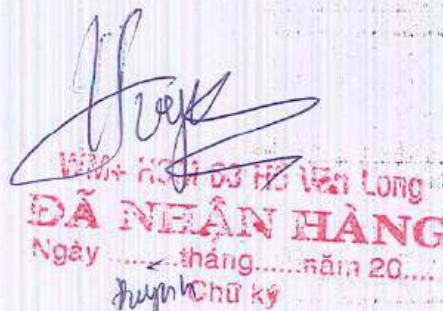 WM+ HCM 63 Hồ Văn Long
ĐÃ NHẬN HÀNG
Ngày ........ tháng ...... năm 20 .....
Huynh Chữ ký